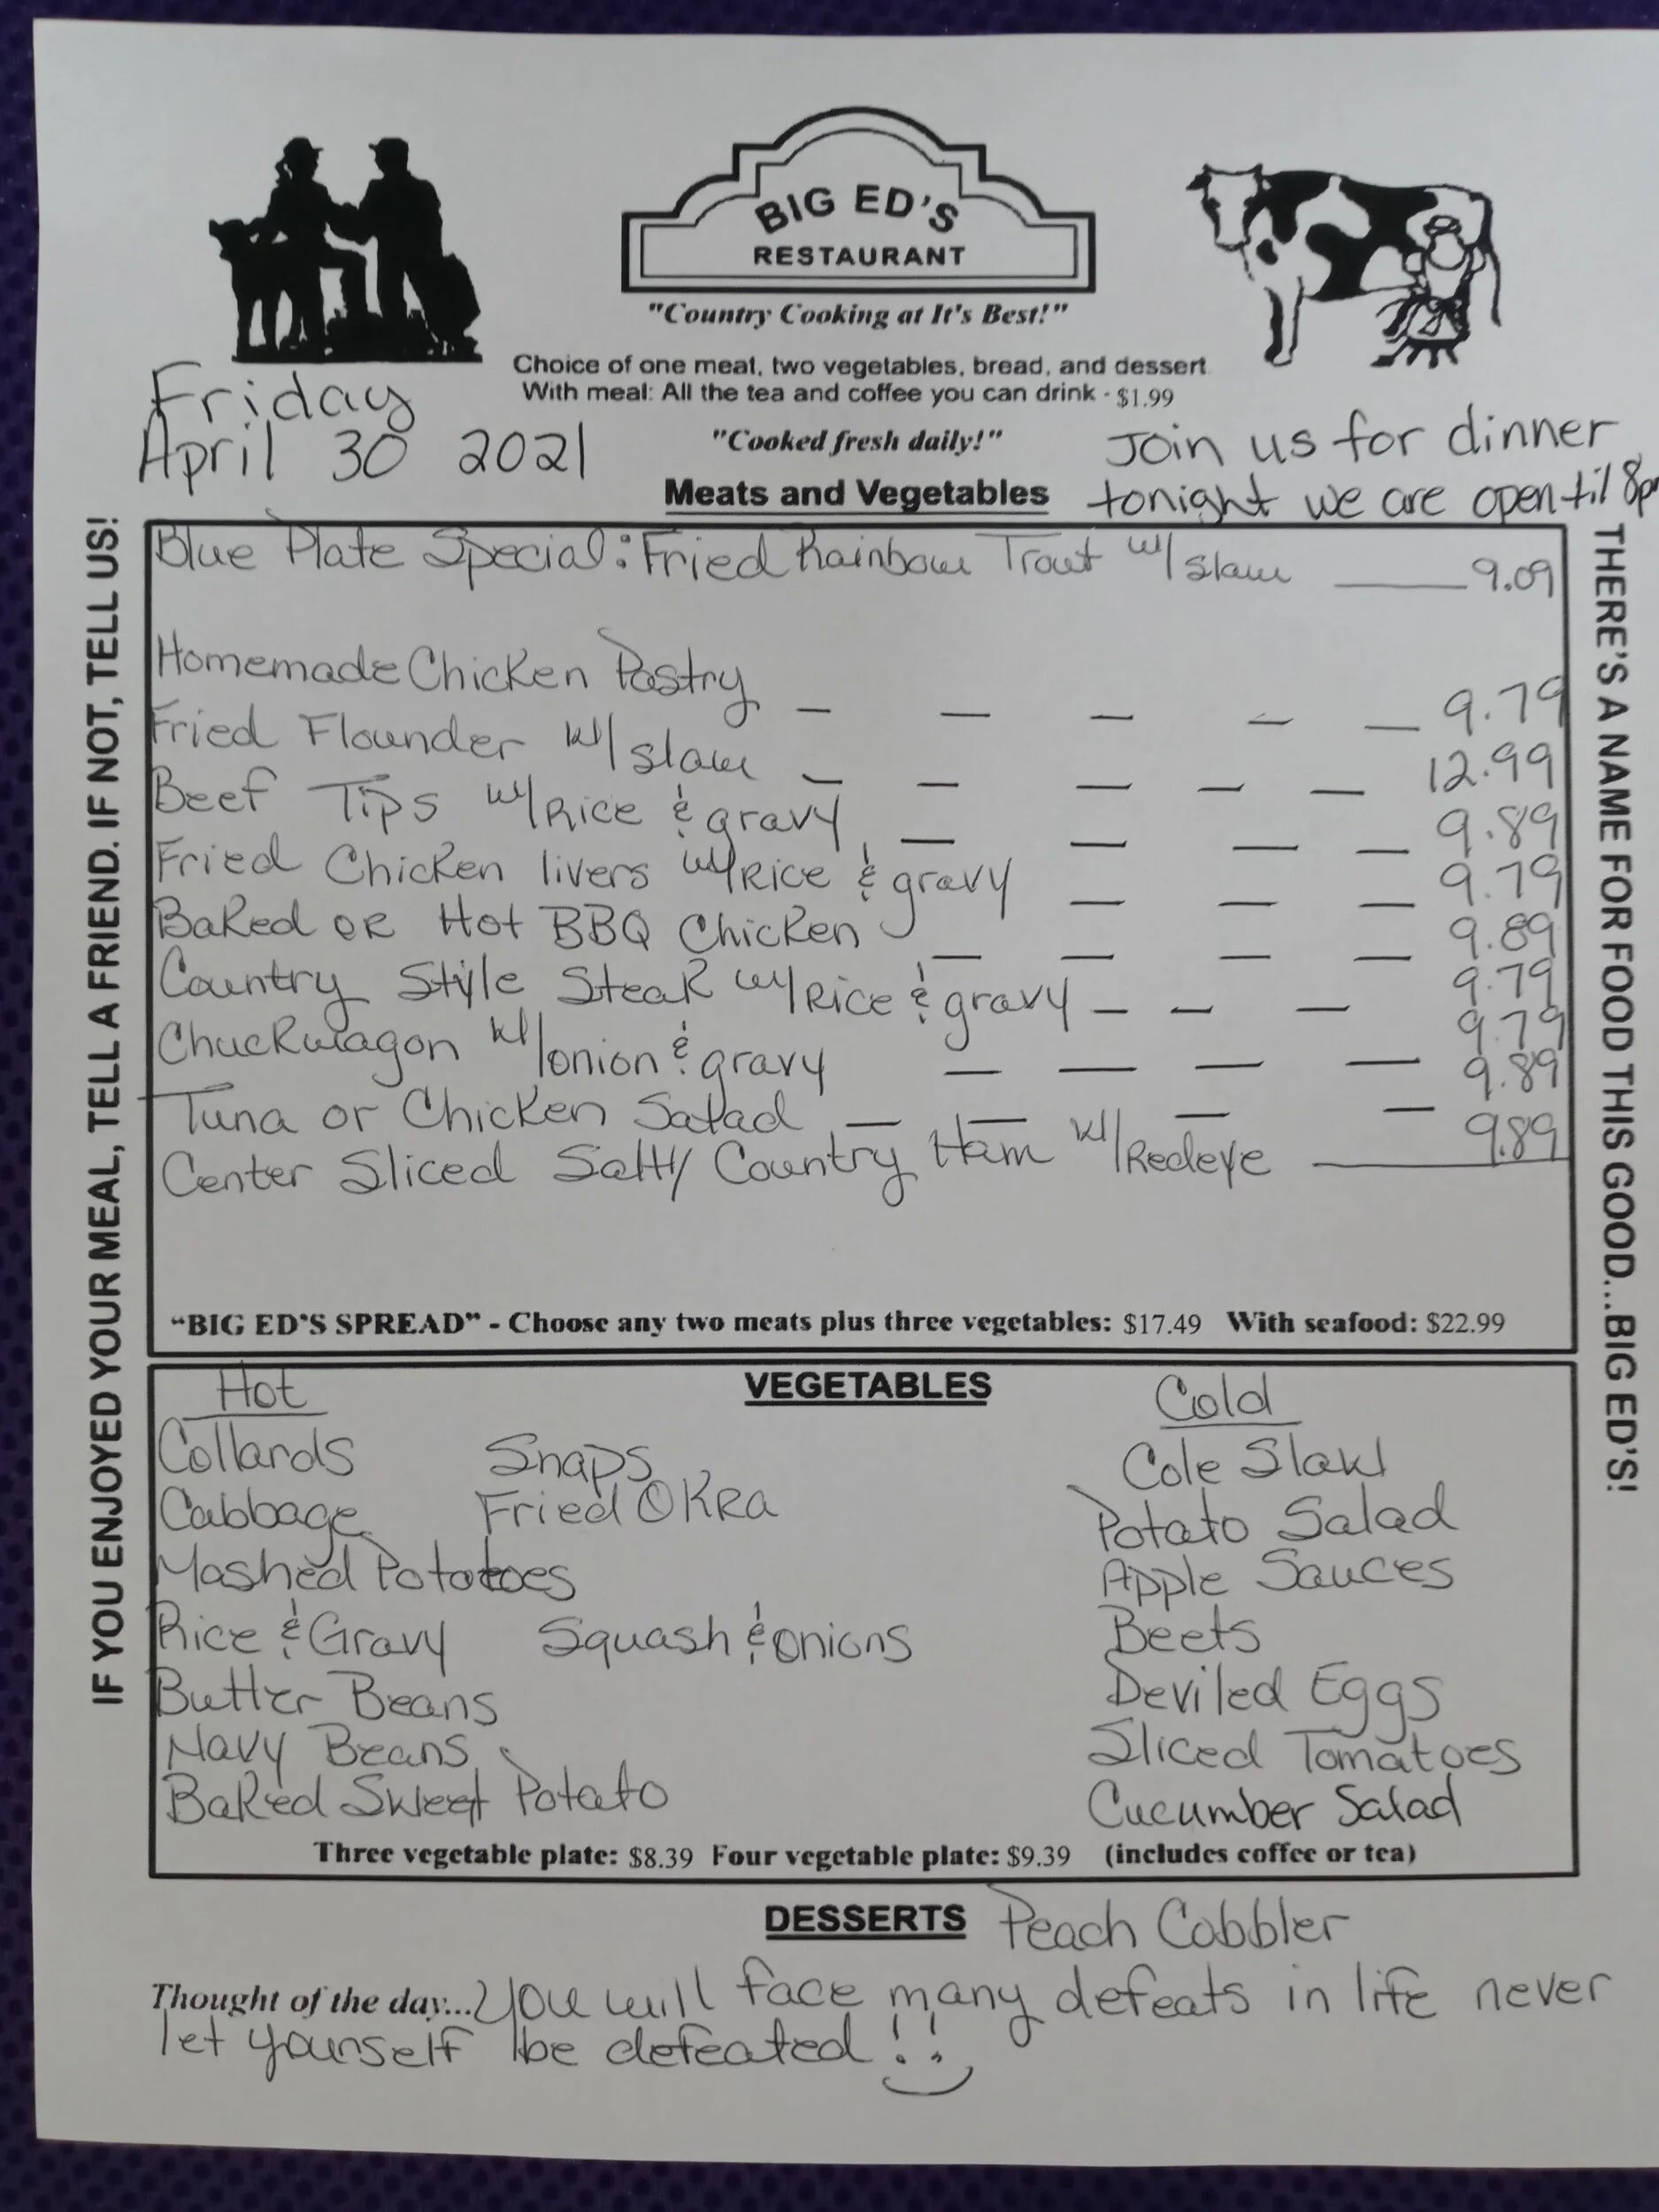 BIG ED'S
RESTAURANT
"Country Cooking at It's Best!"
Choice of one meat, two vegetables, bread, and dessert
With meal: All the tea and coffee you can drink - $1.99
Friday
April 30 2021
"Cooked fresh daily!"
Join us for dinner
tonight we are open til 8p
Meats and Vegetables
IF YOU ENJOYED YOUR MEAL, TELL A FRIEND. IF NOT, TELL US!
Blue Plate Special: Fried Rainbow Trout w/ slaw 9.09
Homemade Chicken Pastry 9.79
Fried Flounder w/ slaw 12.99
Beef Tips w/ Rice & gravy 9.89
Fried Chicken livers w/ Rice & gravy 9.79
Baked or Hot BBQ Chicken 9.89
Country Style Steak w/ Rice & gravy 9.79
Chuckwagon w/ onion & gravy 9.79
Tuna or Chicken Salad 9.89
Center Sliced Salty Country Ham w/ Redeye 9.89
"BIG ED'S SPREAD" - Choose any two meats plus three vegetables: $17.49 With seafood: $22.99
THERE'S A NAME FOR FOOD THIS GOOD...BIG ED'S!
VEGETABLES
Hot
Collards Snaps
Cabbage Fried Okra
Mashed Potatoes
Rice & Gravy Squash & onions
Butter Beans
Navy Beans
Baked Sweet Potato
Cold
Cole Slaw
Potato Salad
Apple Sauces
Beets
Deviled Eggs
Sliced Tomatoes
Cucumber Salad
Three vegetable plate: $8.39 Four vegetable plate: $9.39 (includes coffee or tea)
DESSERTS Peach Cobbler
Thought of the day... You will face many defeats in life never
let yourself be defeated!!